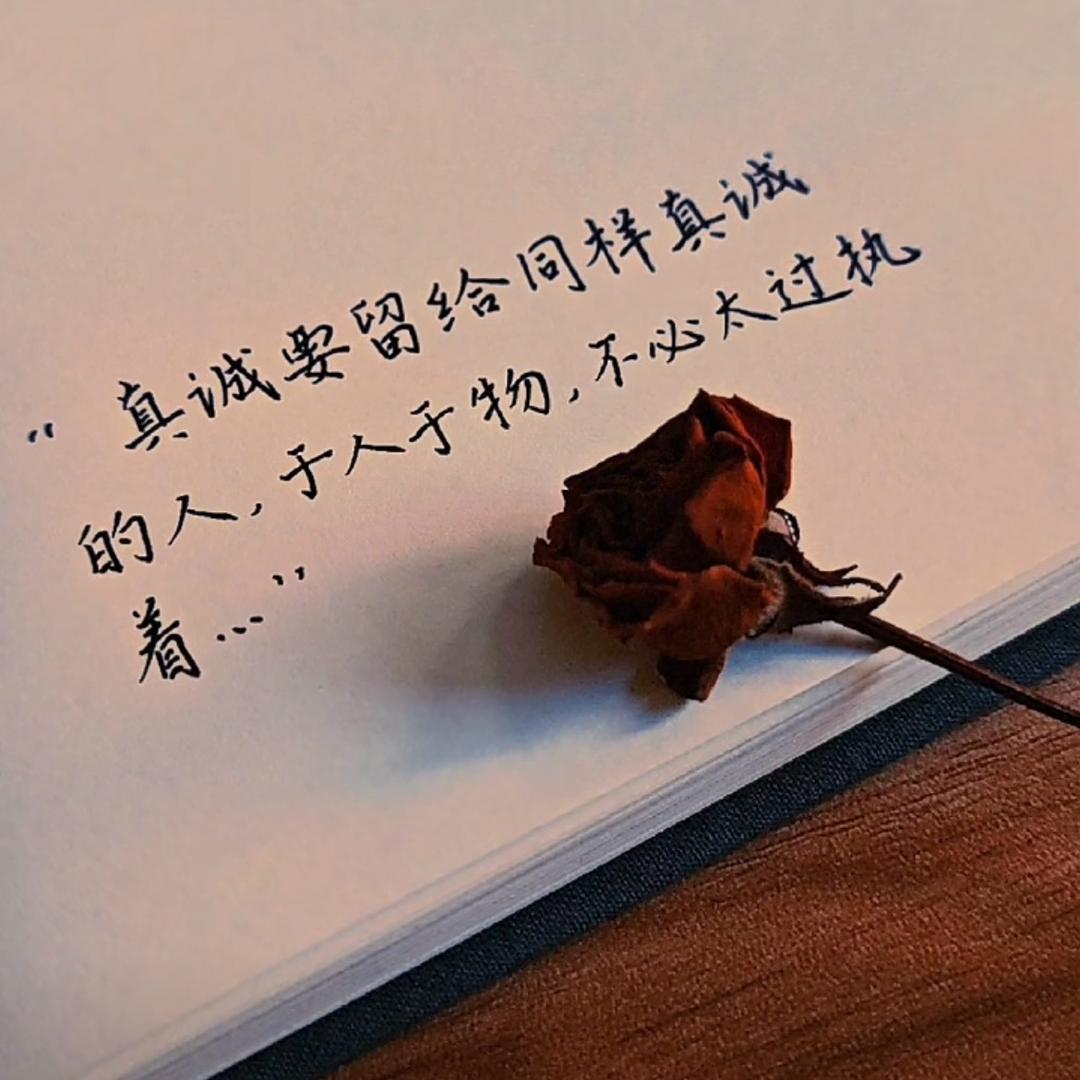 “真诚要留给同样真诚
的人,于人于物,不必太过执
着...”